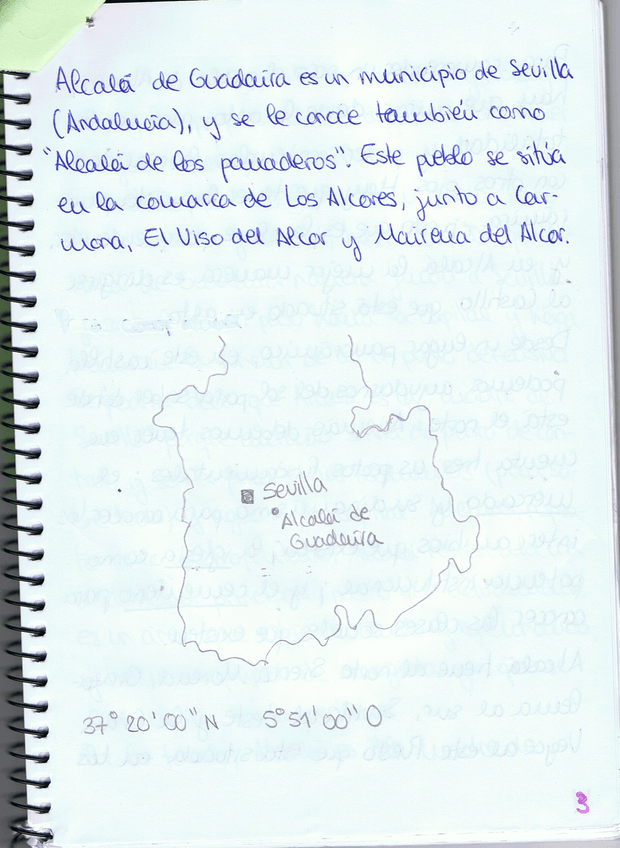 Alcalá de Guadaíra es un municipio de Sevilla
(Andalucía), y se le conoce también como
"Alcalá de los panaderos". Este pueblo se sitúa
en la comarca de Los Alcores, junto a Car-
mona, El Viso del Alcor y Mairena del Alcor.
Sevilla
Alcalá de
Guadaíra
37° 20' 00'' N 5° 51' 00'' O
3